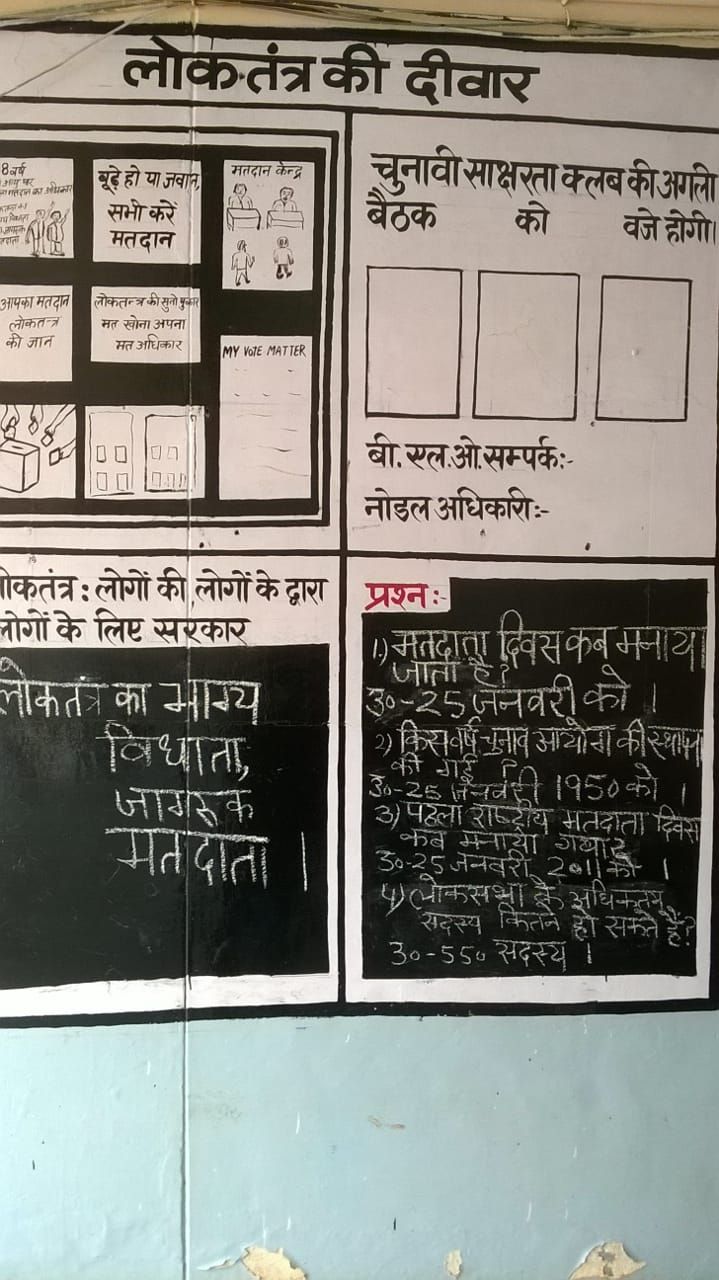 लोकतंत्र की दीवार
8 वर्ष
बूढ़े हो या जवान,
सभी करें
मतदान
मतदान केन्द्र
आपका मतदान
लोकतन्त्र
की जान
लोकतन्त्र की सुनो पुकार
मत खोना अपना
मत अधिकार
MY VOTE MATTER
चुनावी साक्षरता क्लब की अगली
बैठक को वजे होगी।
बी. एल. ओ. सम्पर्क:-
नोडल अधिकारी:-
ोकतंत्र : लोगों की लोगों के द्वारा
लोगों के लिए सरकार
लोकतंत्र का भाग्य
विधाता,
जागरुक
मतदाता ।
प्रश्न:-
1) मतदाता दिवस कब मनाया
जाता है?
उ०-25 जनवरी को ।
2) किस वर्ष चुनाव आयोग की स्थापना
की गई ?
उ०-25 जनवरी 1950 को ।
3) पहला राष्ट्रीय मतदाता दिवस
कब मनाया गया?
उ०-25 जनवरी 2011 को ।
4) लोकसभा के अधिकतम
सदस्य कितने हो सकते हैं?
उ०-550 सदस्य ।